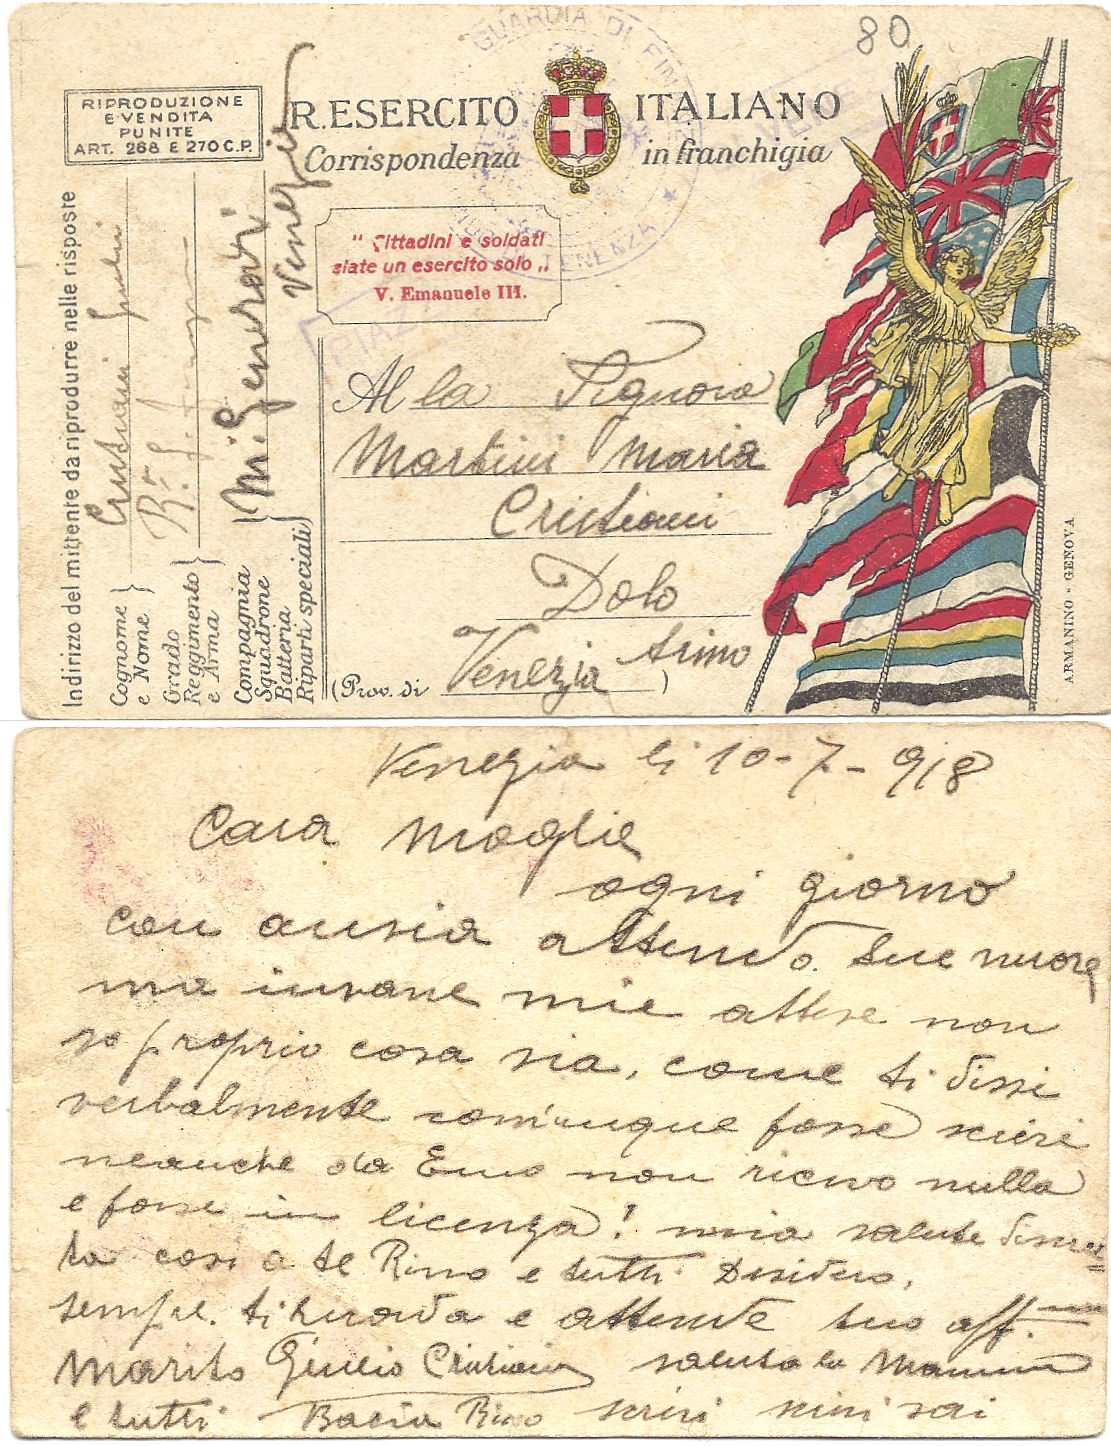 80
GUARDIA DI FIN
TENENZA
RIPRODUZIONE
E VENDITA
PUNITE
ART. 268 E 270 C.P.
R. ESERCITO ITALIANO
Corrispondenza in franchigia
" Cittadini e soldati
siate un esercito solo „
V. Emanuele III.
Indirizzo del mittente da riprodurre nelle risposte
Cognome
e Nome
Grado
Reggimento
e Arma
Compagnia
Squadrone
Batteria
Riparti speciali
Venezia
Alla Signora
Martini Maria
Cristiani
Dolo
Arino
(Prov. di Venezia)
ARMANINO - GENOVA
Venezia li 10-7-918
Cara Moglie
ogni giorno
con ansia attendo tue nuove
ma invane mie attese non
so proprio cosa sia, come ti dissi
verbalmente comunque fosse scrivi
neanche da Emo non ricevo nulla
e forse in licenza! mia salute
ta cosi a te Rino e tutti Desidero,
sempre ti ricorda e attende tuo aff.
Marito Giulio Cristiani saluta la Mamma
e tutti Bacia Rino scrivi